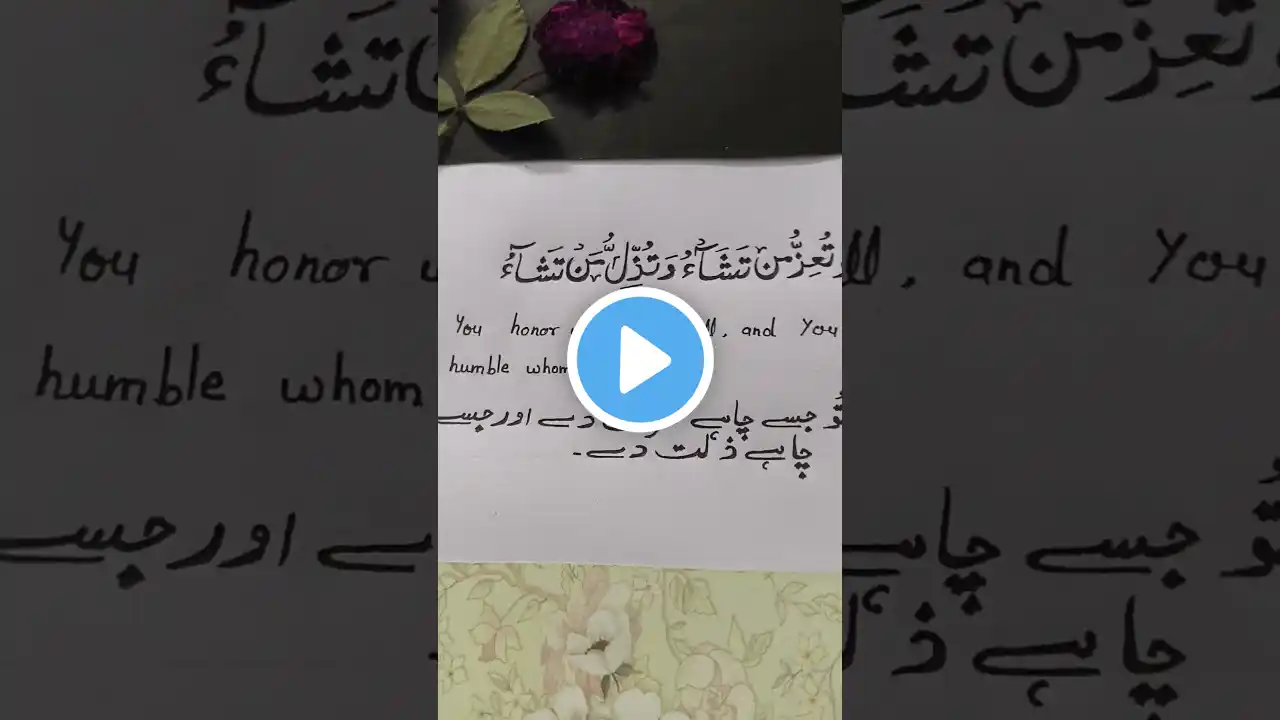 وَتُعِزُّ مَنْ تَشَآءُ وَتُذِلُّ مَنْ تَشَآءُ
You honor will, and You
humble whom
تُو جسے چاہے دے اور جسے
چاہے ذلت دے۔